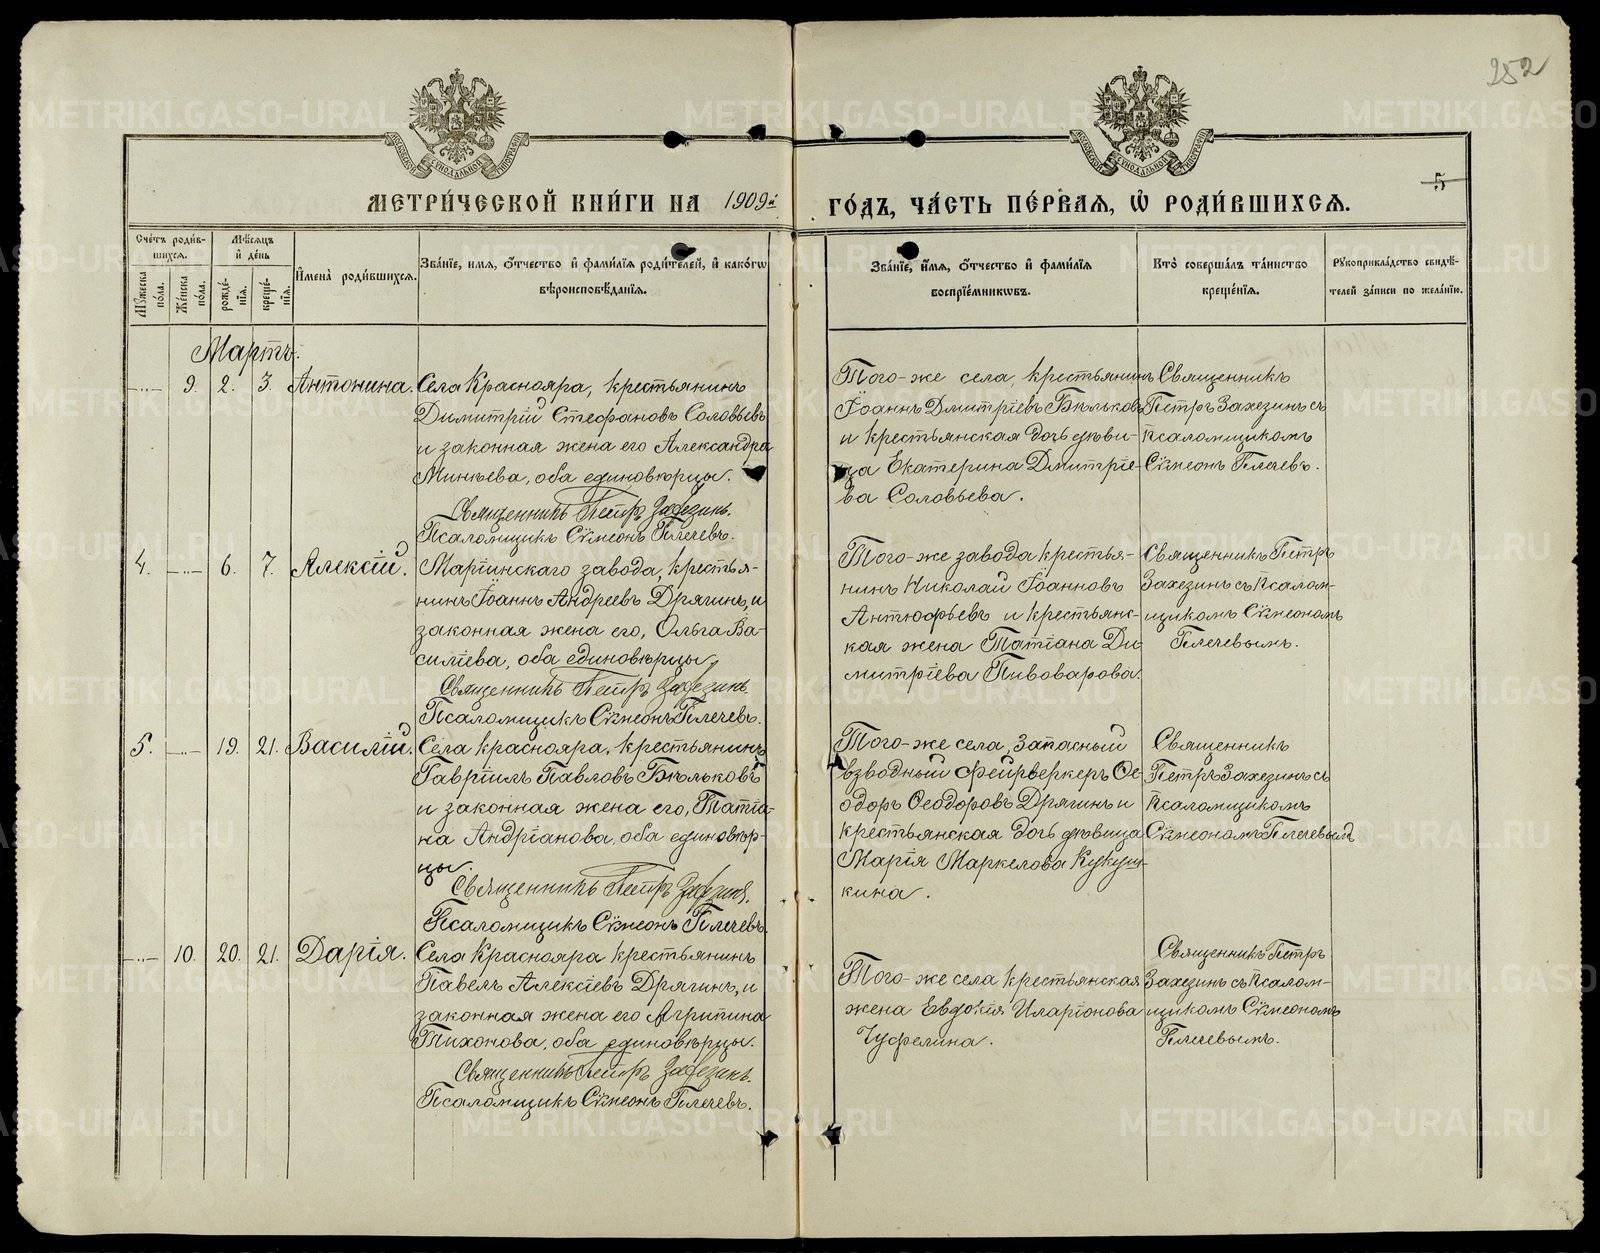 252
МЕТРИ́ЧЕСКОЙ КНИ́ГИ НА 1909й ГО́ДЪ, ЧА́СТЬ ПЕ́РВАЯ, Ѡ҆ РОДИ́ВШИХСЯ.
5
Сче́тъ роди́в-
шихся.
Мꙋ́жеска по́ла.
Же́нска по́ла.
Мѣ́сяцъ
и҆ де́нь
рожде́-
нїя.
креще́-
нїя.
И҆мена̀ роди́вшихся.
Зва́нїе, имя, ѻ҆́тчество и҆ фами́лїя роди́телей, и҆ како́гѡ
вѣроисповѣ́данїя.
Зва́нїе, и҆́мя, ѻ҆́тчество и҆ фами́лїя
воспрїе́мниковъ.
Кто̀ соверша́лъ та́инство
креще́нїя.
Рꙋкоприкла́дство свидѣ́-
телей за́писи по жела́нїю.
Мартъ.
9. 2. 3. Антонина.
Села Краснояра, крестьянинъ
Димитрій Стефановъ Соловьевъ
и законная жена его Александра
Минѣева, оба единовѣрцы.
Священникъ Петръ Захезинъ.
Псаломщикъ Сѵмеонъ Пѣлечевъ.
Того-же села, крестьянинъ
Іоаннъ Дмитріевъ Бѣльковъ
и крестьянская дочь дѣви-
ца Екатерина Дмитріе-
ва Соловьева.
Священникъ
Петръ Захезинъ съ
Псаломщикомъ
Сѵмеонъ Пѣлечевъ.
4. 6. 7. Алексій.
Маріинскаго завода, крестья-
нинъ Іоаннъ Андреевъ Дрягинъ, и
законная жена его, Ольга Ва-
силіева, оба единовѣрцы.
Священникъ Петръ Захезинъ.
Псаломщикъ Сѵмеонъ Пѣлечевъ.
Того-же завода крестья-
нинъ Николай Іоанновъ
Антюфьевъ и крестьянс-
кая жена Татіана Ди
митріева Пивоварова.
Священникъ Петръ
Захезинъ съ Псалом-
щикомъ Сѵмеономъ
Пѣлечевымъ.
5. 19. 21. Василій.
Села Краснояра, крестьянинъ
Гавріилъ Павловъ Бѣльковъ
и законная жена его, Татіа-
на Андріанова, оба единовѣр-
цы.
Священникъ Петръ Захезинъ.
Псаломщикъ Сѵмеонъ Пѣлечевъ.
Того-же села, запасный
взводный фейрверкеръ Ѳе-
одоръ Ѳеодоровъ Дрягинъ и
крестьянская дочь дѣвица
Марія Маркелова Кукуш-
кина.
Священникъ
Петръ Захезинъ съ
Псаломщикомъ
Сѵмеономъ Пѣлечевымъ
10. 20. 21. Дарія.
Села Краснояра крестьянинъ
Павелъ Алексіевъ Дрягинъ, и
законная жена его Агрипина
Тихонова, оба единовѣрцы.
Священникъ Петръ Захезинъ.
Псаломщикъ Сѵмеонъ Пѣлечевъ.
Того-же села крестьянская
жена Евдокія Иларіонова
Чуфелина.
Священникъ Петръ
Захезинъ съ Псалом-
щикомъ Сѵмеономъ
Пѣлечевымъ.
METRIKI.GASO-URAL.RU